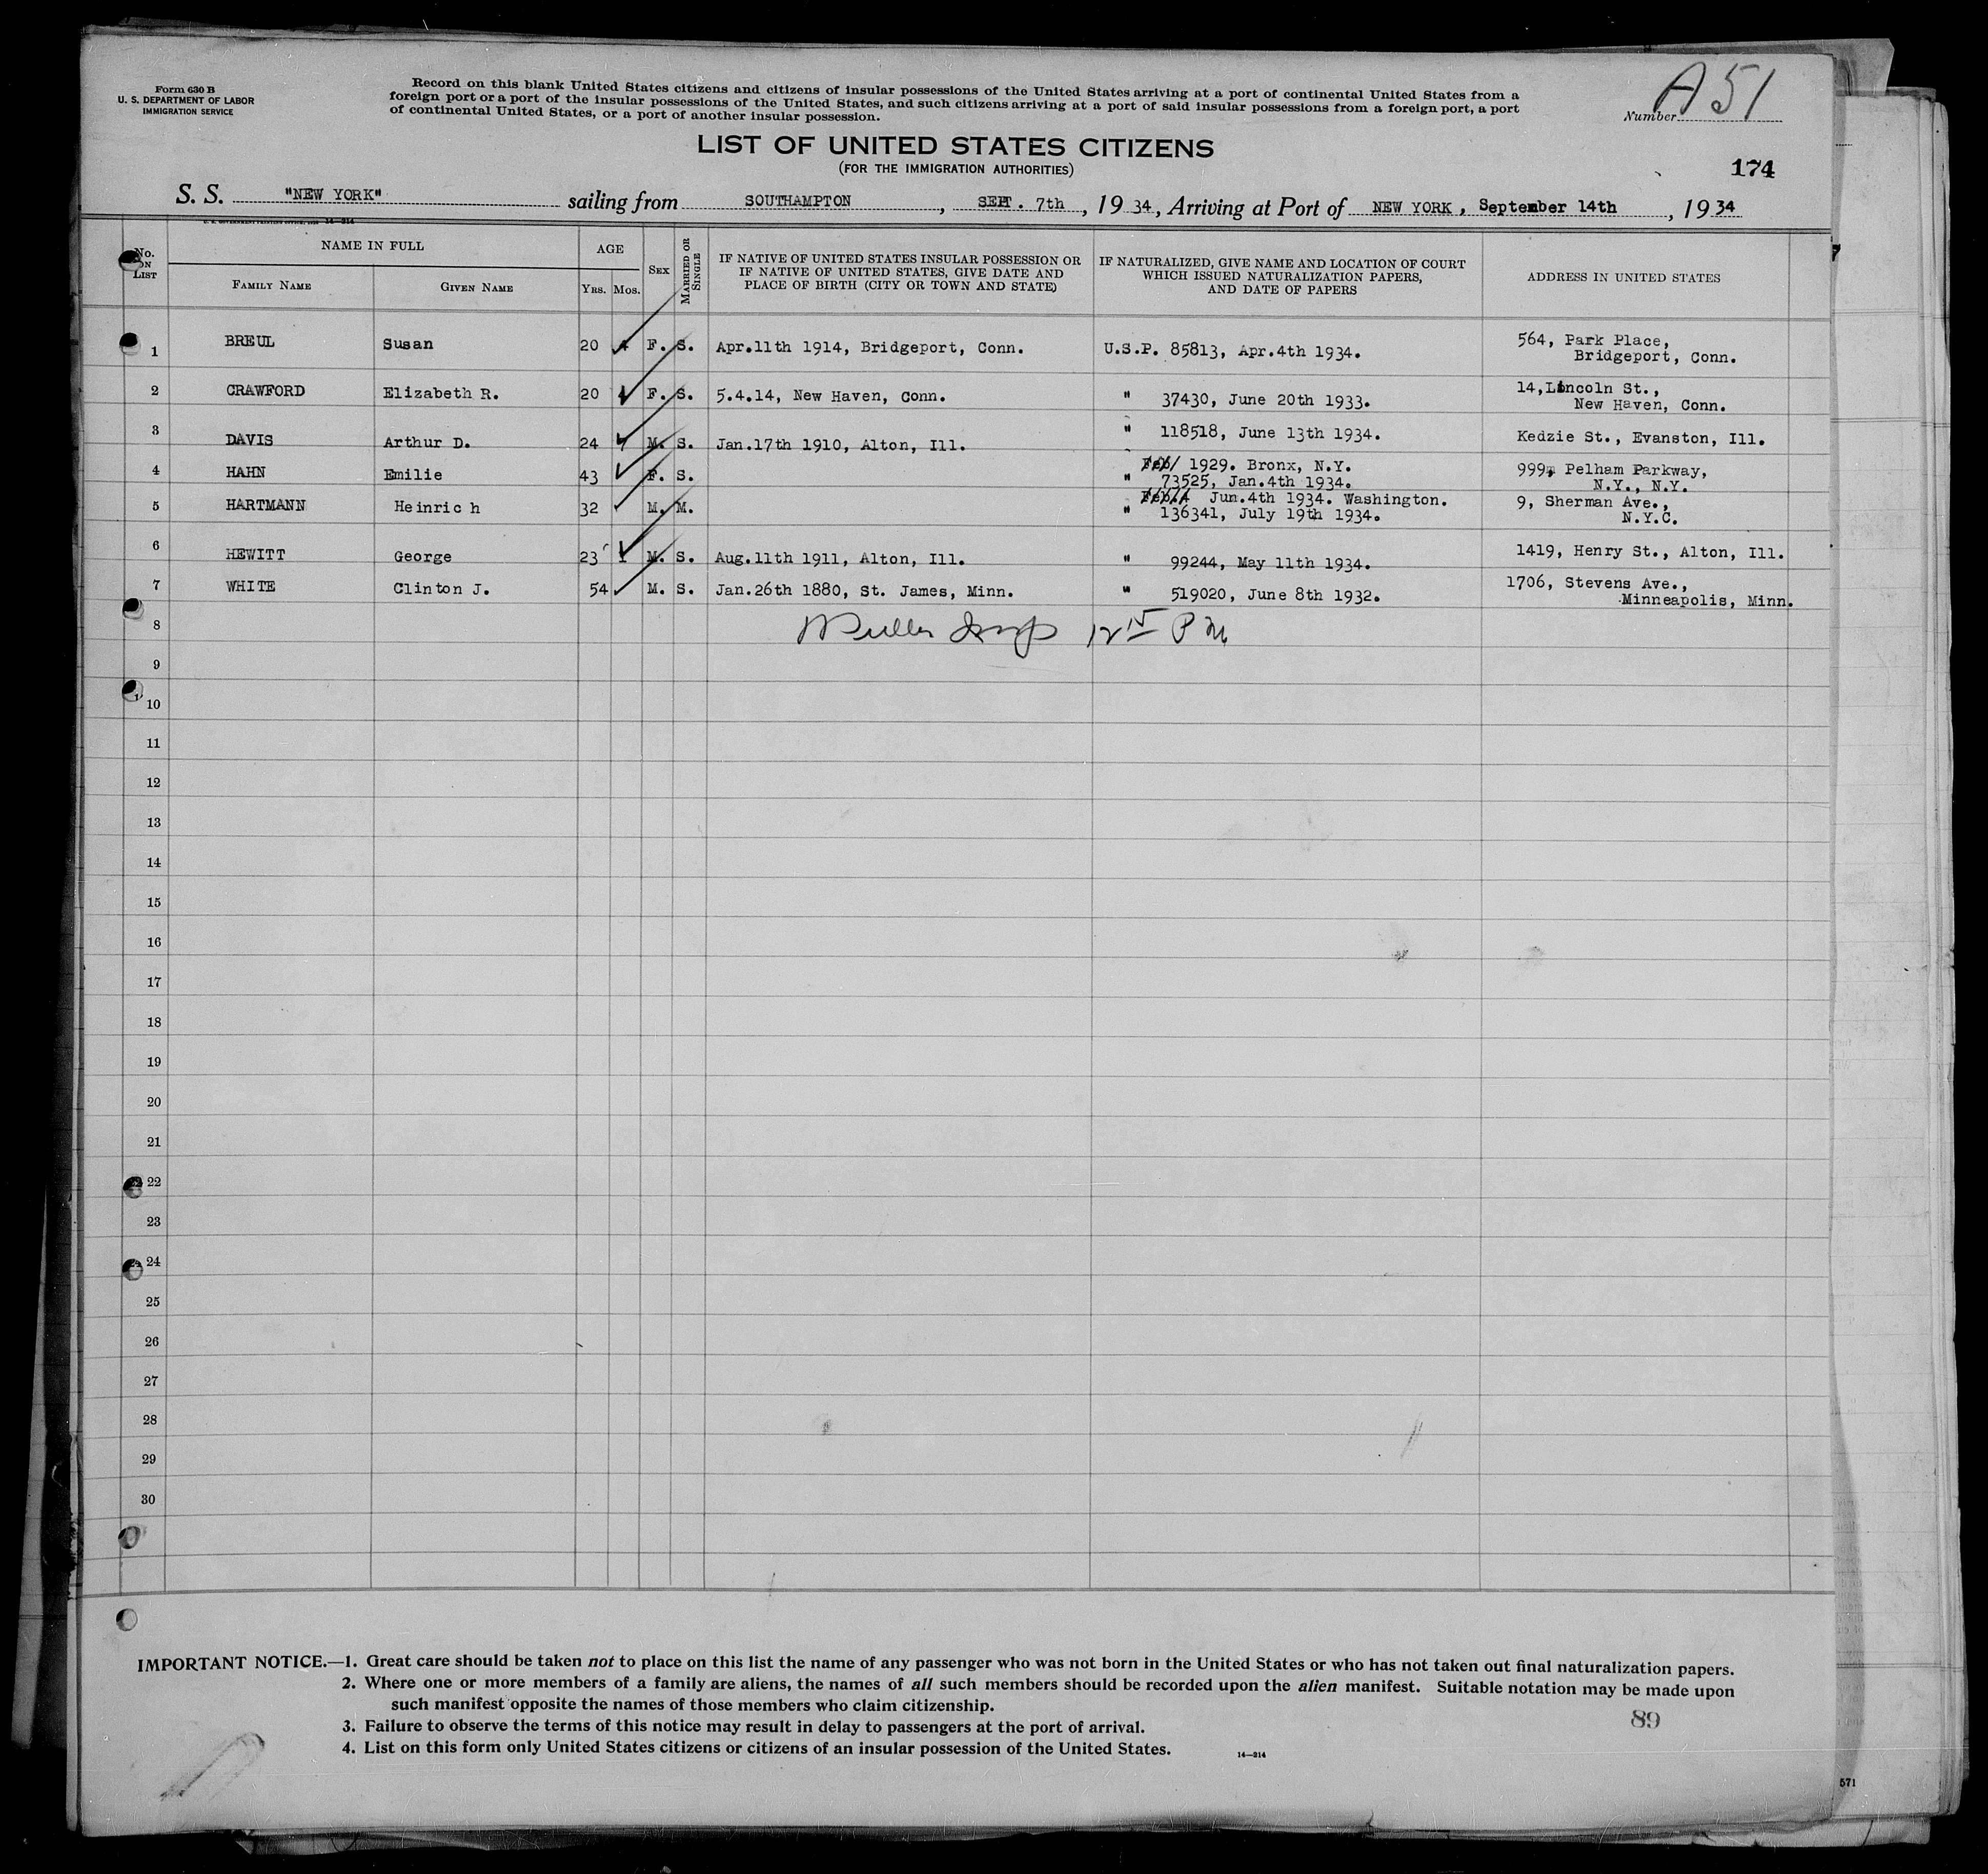 Form 630 B
U. S. DEPARTMENT OF LABOR
IMMIGRATION SERVICE
Record on this blank United States citizens and citizens of insular possessions of the United States arriving at a port of continental United States from a
foreign port or a port of the insular possessions of the United States, and such citizens arriving at a port of said insular possessions from a foreign port, a port
of continental United States, or a port of another insular possession.
Number A51
LIST OF UNITED STATES CITIZENS
(FOR THE IMMIGRATION AUTHORITIES)
174
S. S. "NEW YORK" sailing from SOUTHAMPTON, SEPT. 7th, 19 34, Arriving at Port of NEW YORK, September 14th, 19 34
No. ON LIST
NAME IN FULL
FAMILY NAME GIVEN NAME
AGE
YRS. MOS.
SEX
MARRIED OR SINGLE
IF NATIVE OF UNITED STATES INSULAR POSSESSION OR
IF NATIVE OF UNITED STATES, GIVE DATE AND
PLACE OF BIRTH (CITY OR TOWN AND STATE)
IF NATURALIZED, GIVE NAME AND LOCATION OF COURT
WHICH ISSUED NATURALIZATION PAPERS,
AND DATE OF PAPERS
ADDRESS IN UNITED STATES
1 BREUL Susan 20 4 F. S. Apr.11th 1914, Bridgeport, Conn. U.S.P. 85813, Apr.4th 1934. 564, Park Place,
Bridgeport, Conn.
2 CRAWFORD Elizabeth R. 20 4 F. S. 5.4.14, New Haven, Conn. " 37430, June 20th 1933. 14,Lincoln St.,
New Haven, Conn.
3 DAVIS Arthur D. 24 7 M. S. Jan.17th 1910, Alton, Ill. " 118518, June 13th 1934. Kedzie St., Evanston, Ill.
4 HAHN Emilie 43 F. S. Feb/ 1929. Bronx, N.Y. 999, Pelham Parkway,
" 73525, Jan.4th 1934. N.Y., N.Y.
5 HARTMANN Heinrich 32 M. M. Jun.4th 1934. Washington. 9, Sherman Ave.,
" 136341, July 19th 1934. N.Y.C.
6 HEWITT George 23 1 M. S. Aug.11th 1911, Alton, Ill. " 99244, May 11th 1934. 1419, Henry St., Alton, Ill.
7 WHITE Clinton J. 54 M. S. Jan.26th 1880, St. James, Minn. " 519020, June 8th 1932. 1706, Stevens Ave.,
Minneapolis, Minn.
8 12 15 P M
9
10
11
12
13
14
15
16
17
18
19
20
21
22
23
24
25
26
27
28
29
30
IMPORTANT NOTICE.—1. Great care should be taken not to place on this list the name of any passenger who was not born in the United States or who has not taken out final naturalization papers.
2. Where one or more members of a family are aliens, the names of all such members should be recorded upon the alien manifest. Suitable notation may be made upon
such manifest opposite the names of those members who claim citizenship.
3. Failure to observe the terms of this notice may result in delay to passengers at the port of arrival.
4. List on this form only United States citizens or citizens of an insular possession of the United States.
14—214
89
571